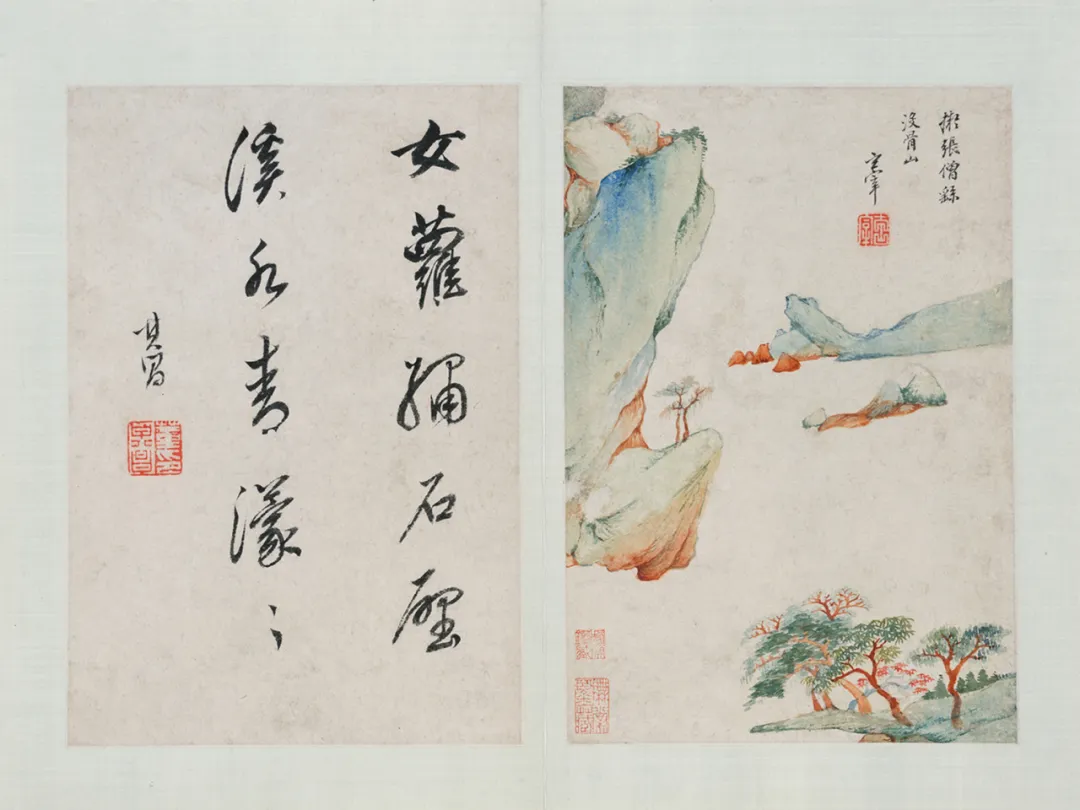 擬張僧繇
沒骨山
玄宰
女蘿繡石壁
溪水青濛〻
其昌